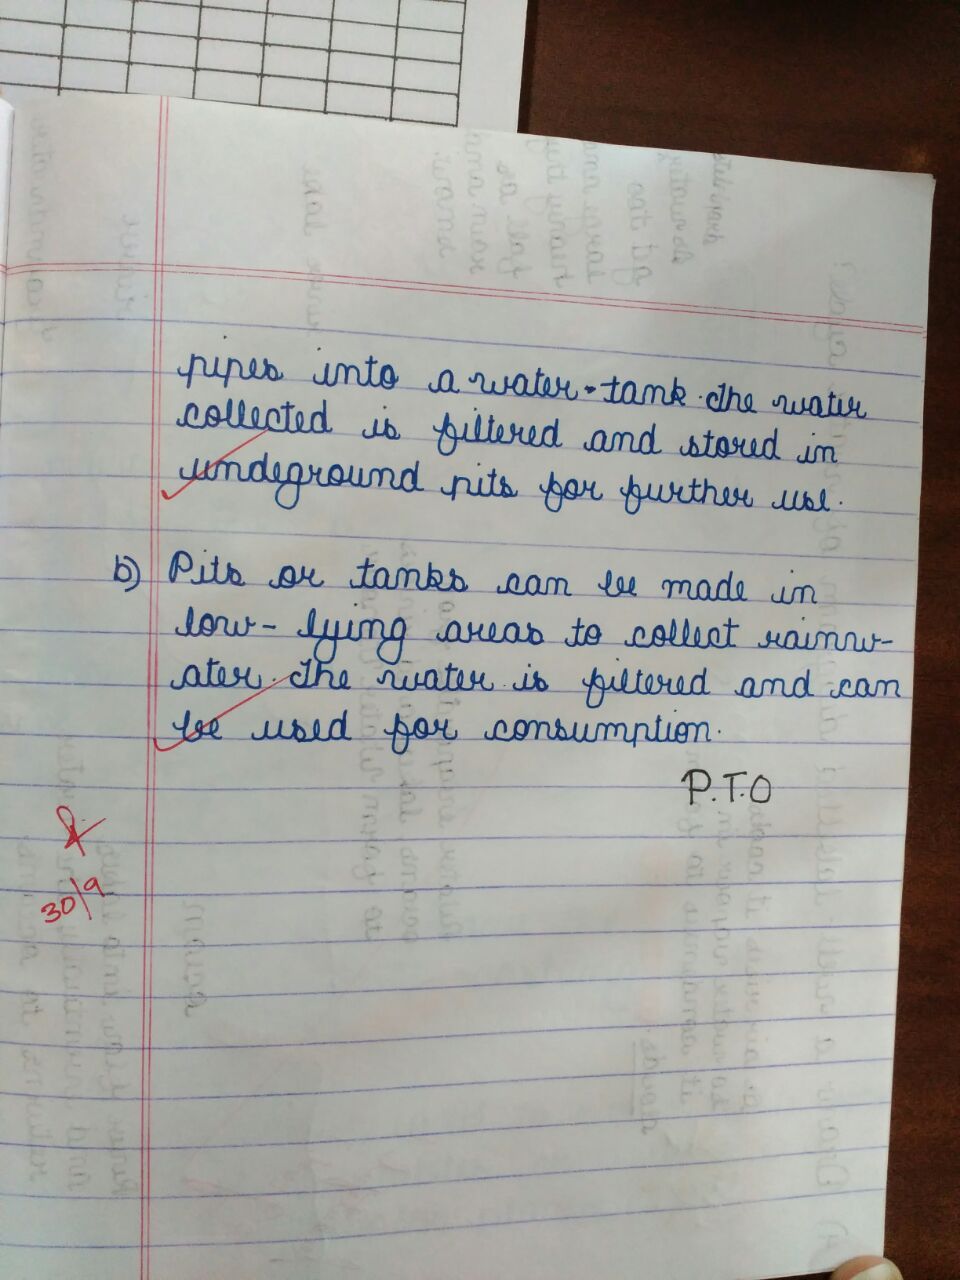 pipes into a water-tank. The water
collected is filtered and stored in
undeground pits for further use.
b) Pits or tanks can be made in
low-lying areas to collect rainw-
ater. The water is filtered and can
be used for consumption.
P.T.O
30/9